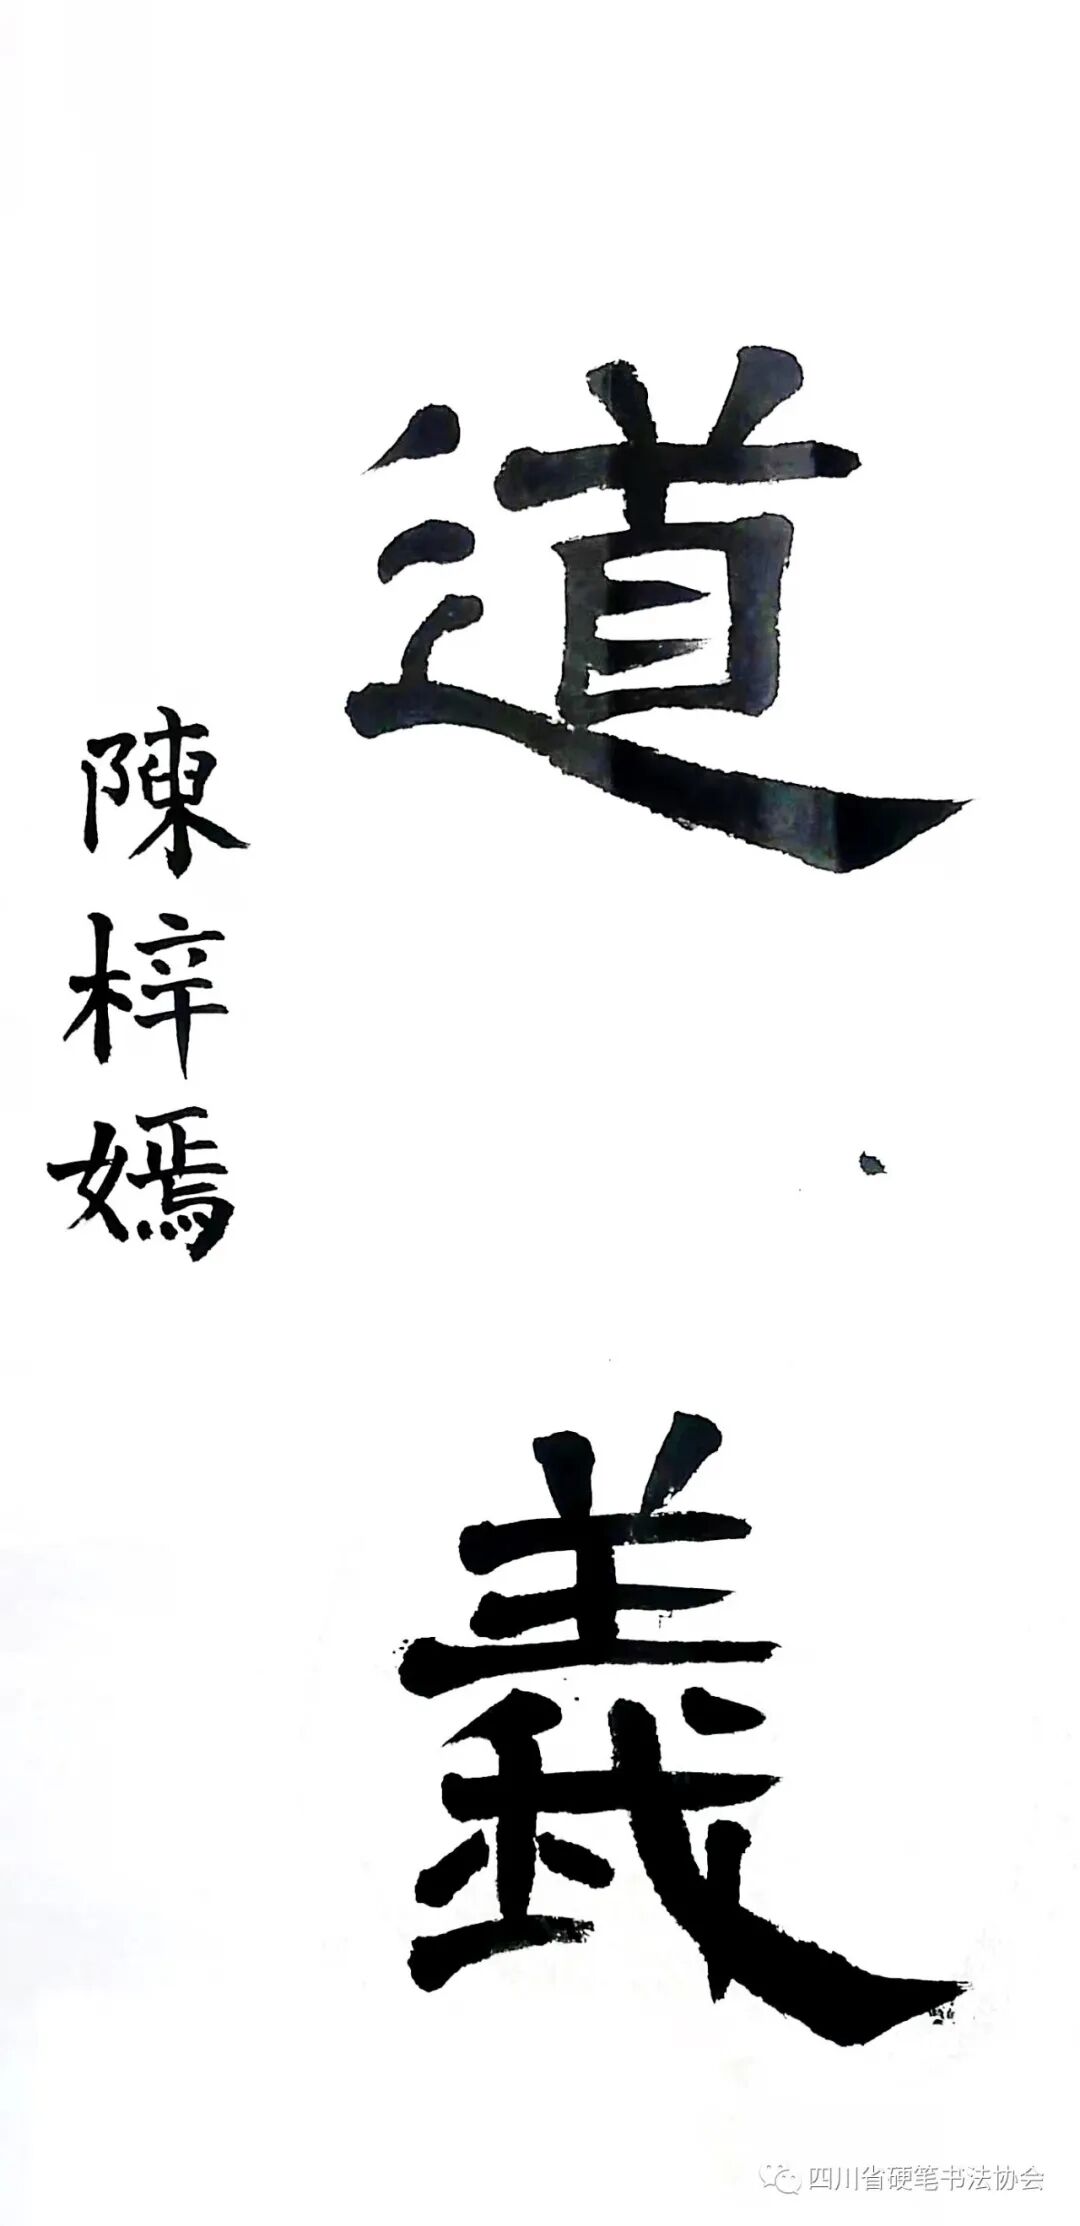 道義
陳梓嫣
四川省硬笔书法协会